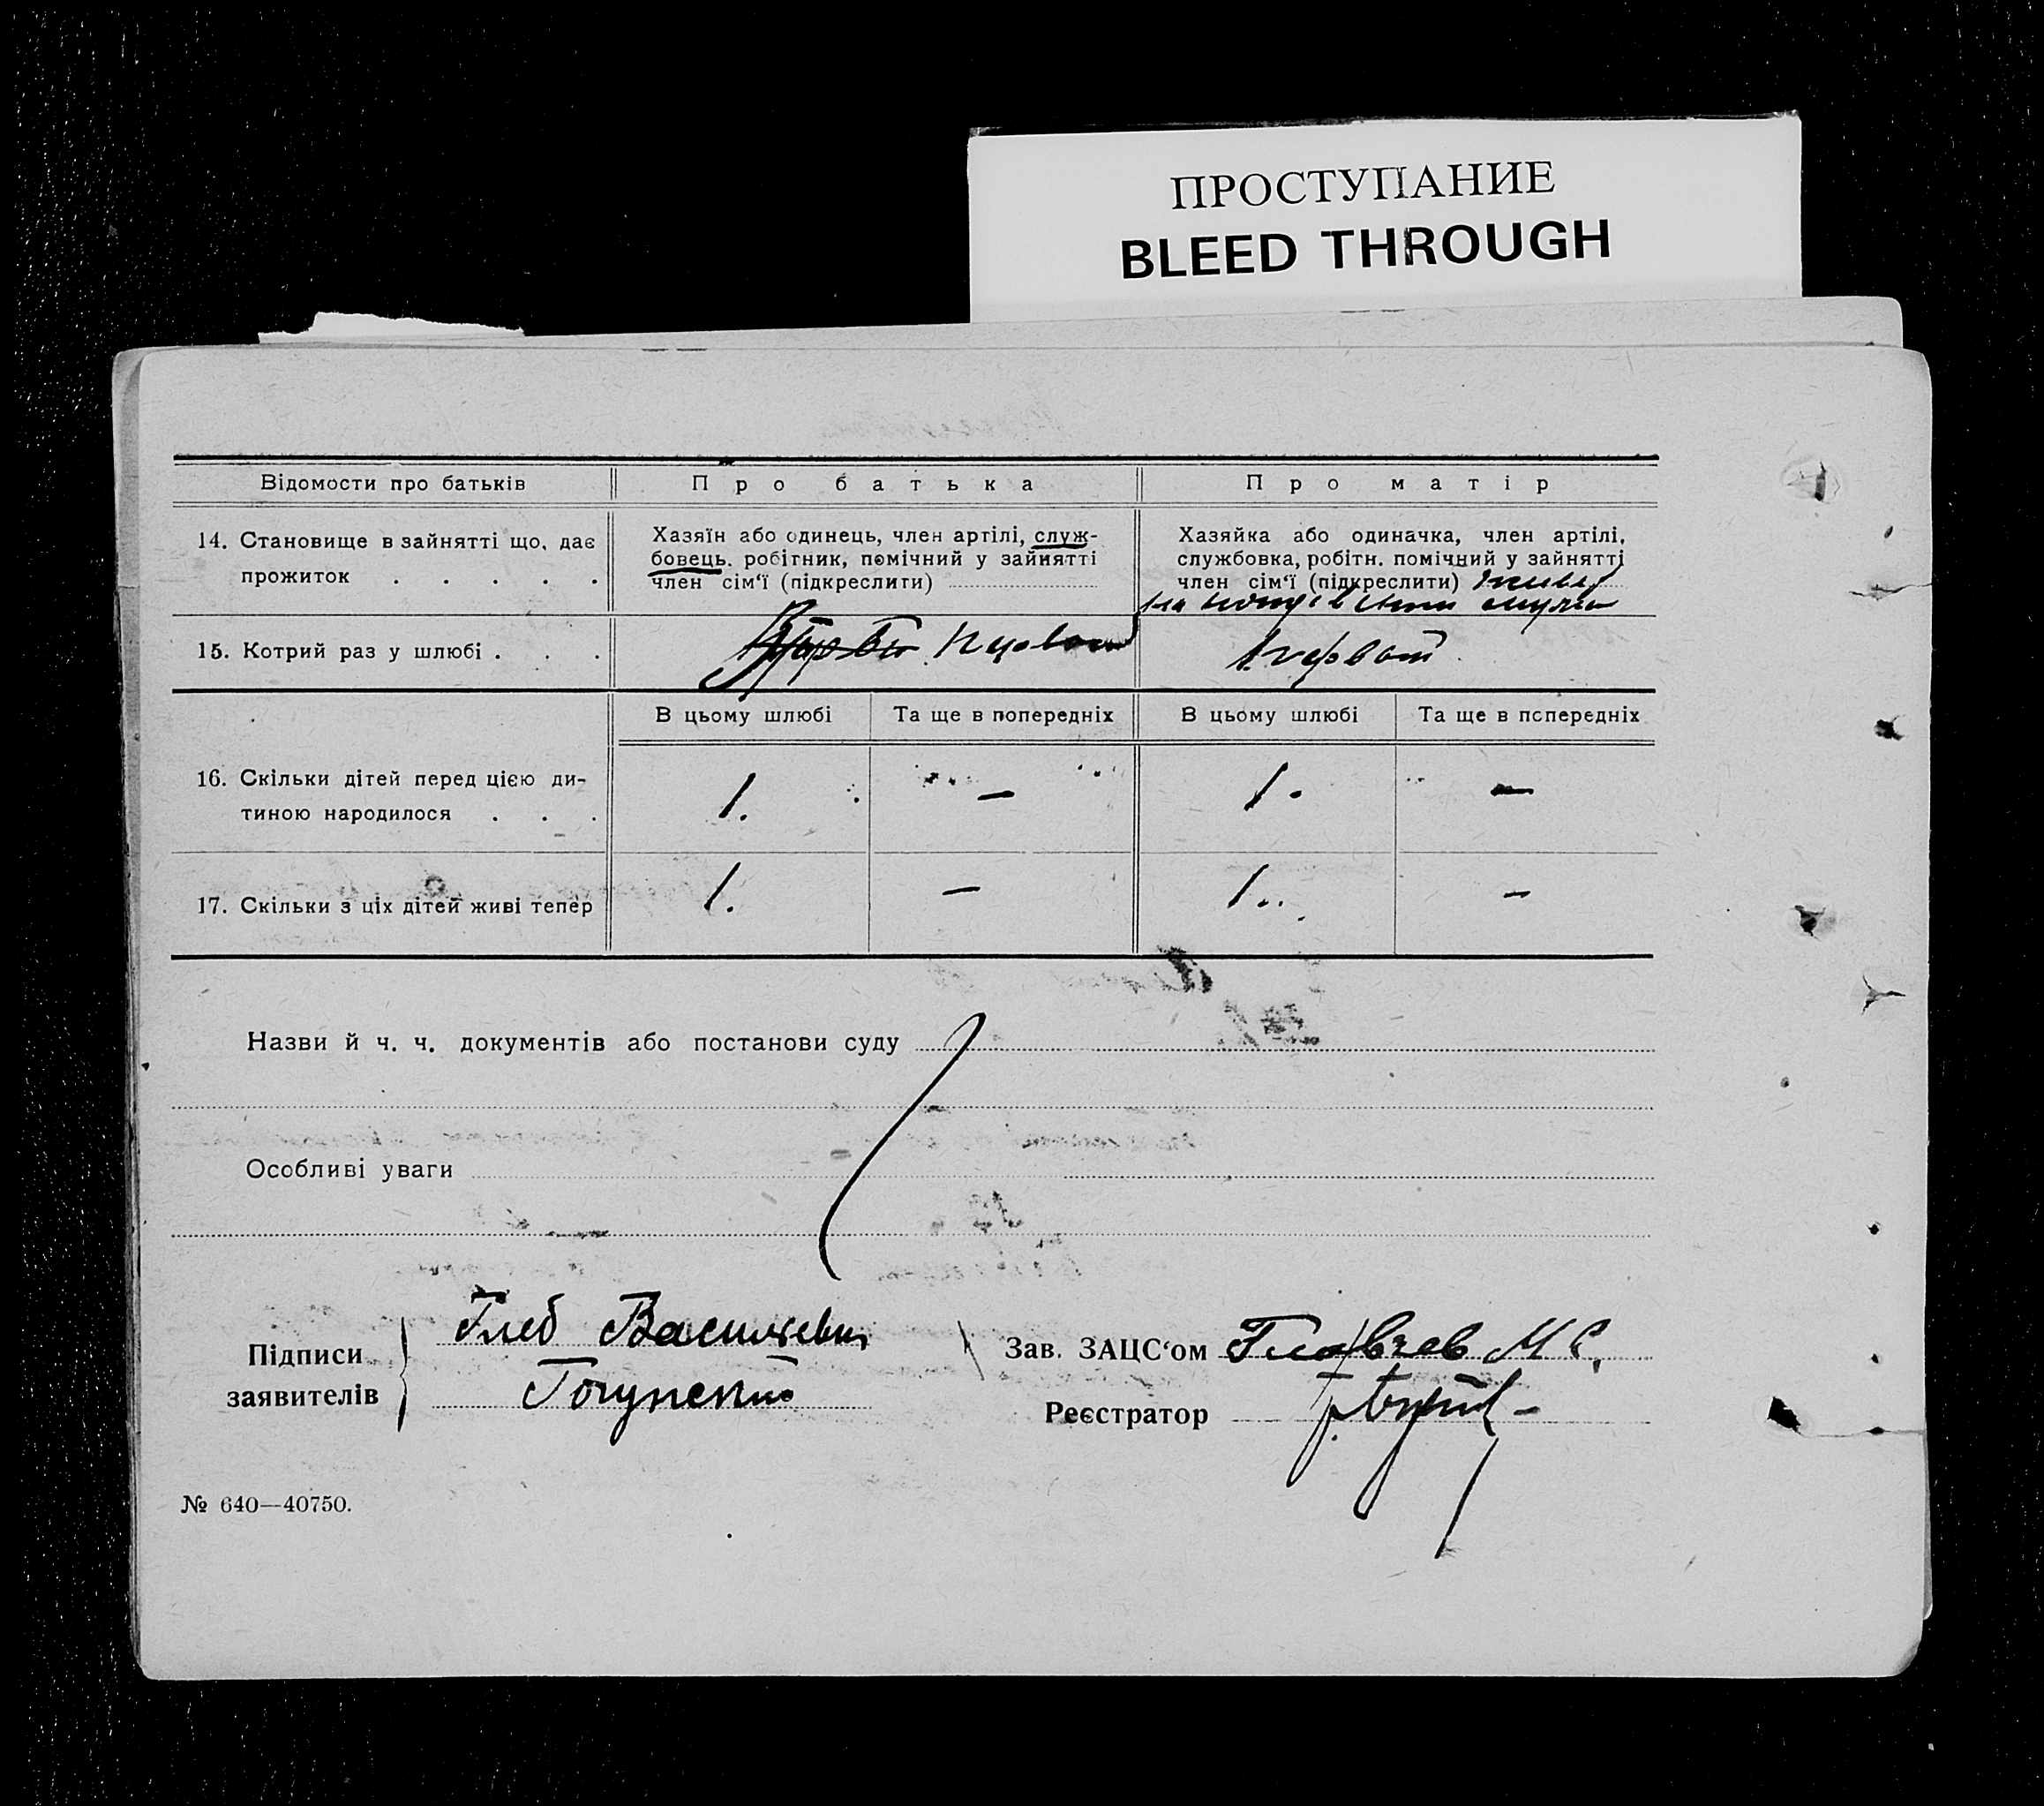 ПРОСТУПАНИЕ
BLEED THROUGH
Відомости про батьків
Про батька
Про матір
14. Становище в зайнятті що, дає
прожиток . . . . .
Хазяїн або одинець, член артілі, служ-
бовець. робітник, помічний у зайнятті
член сім‘ї (підкреслити)
Хазяйка або одиначка, член артілі,
службовка, робітн. помічний у зайнятті
член сім‘ї (підкреслити)
15. Котрий раз у шлюбі . . .
В цьому шлюбі
Та ще в попередніх
В цьому шлюбі
Та ще в попередніх
16. Скільки дітей перед цією ди-
тиною народилося . . .
1.
—
1.
—
17. Скільки з ціх дітей живі тепер
1.
—
1..
—
Назви й ч. ч. документів або постанови суду
Особливі уваги
Підписи
заявителів
Глеб Васильевич
Зав. ЗАЦС‘ом
М С.
Реєстратор
№ 640—40750.